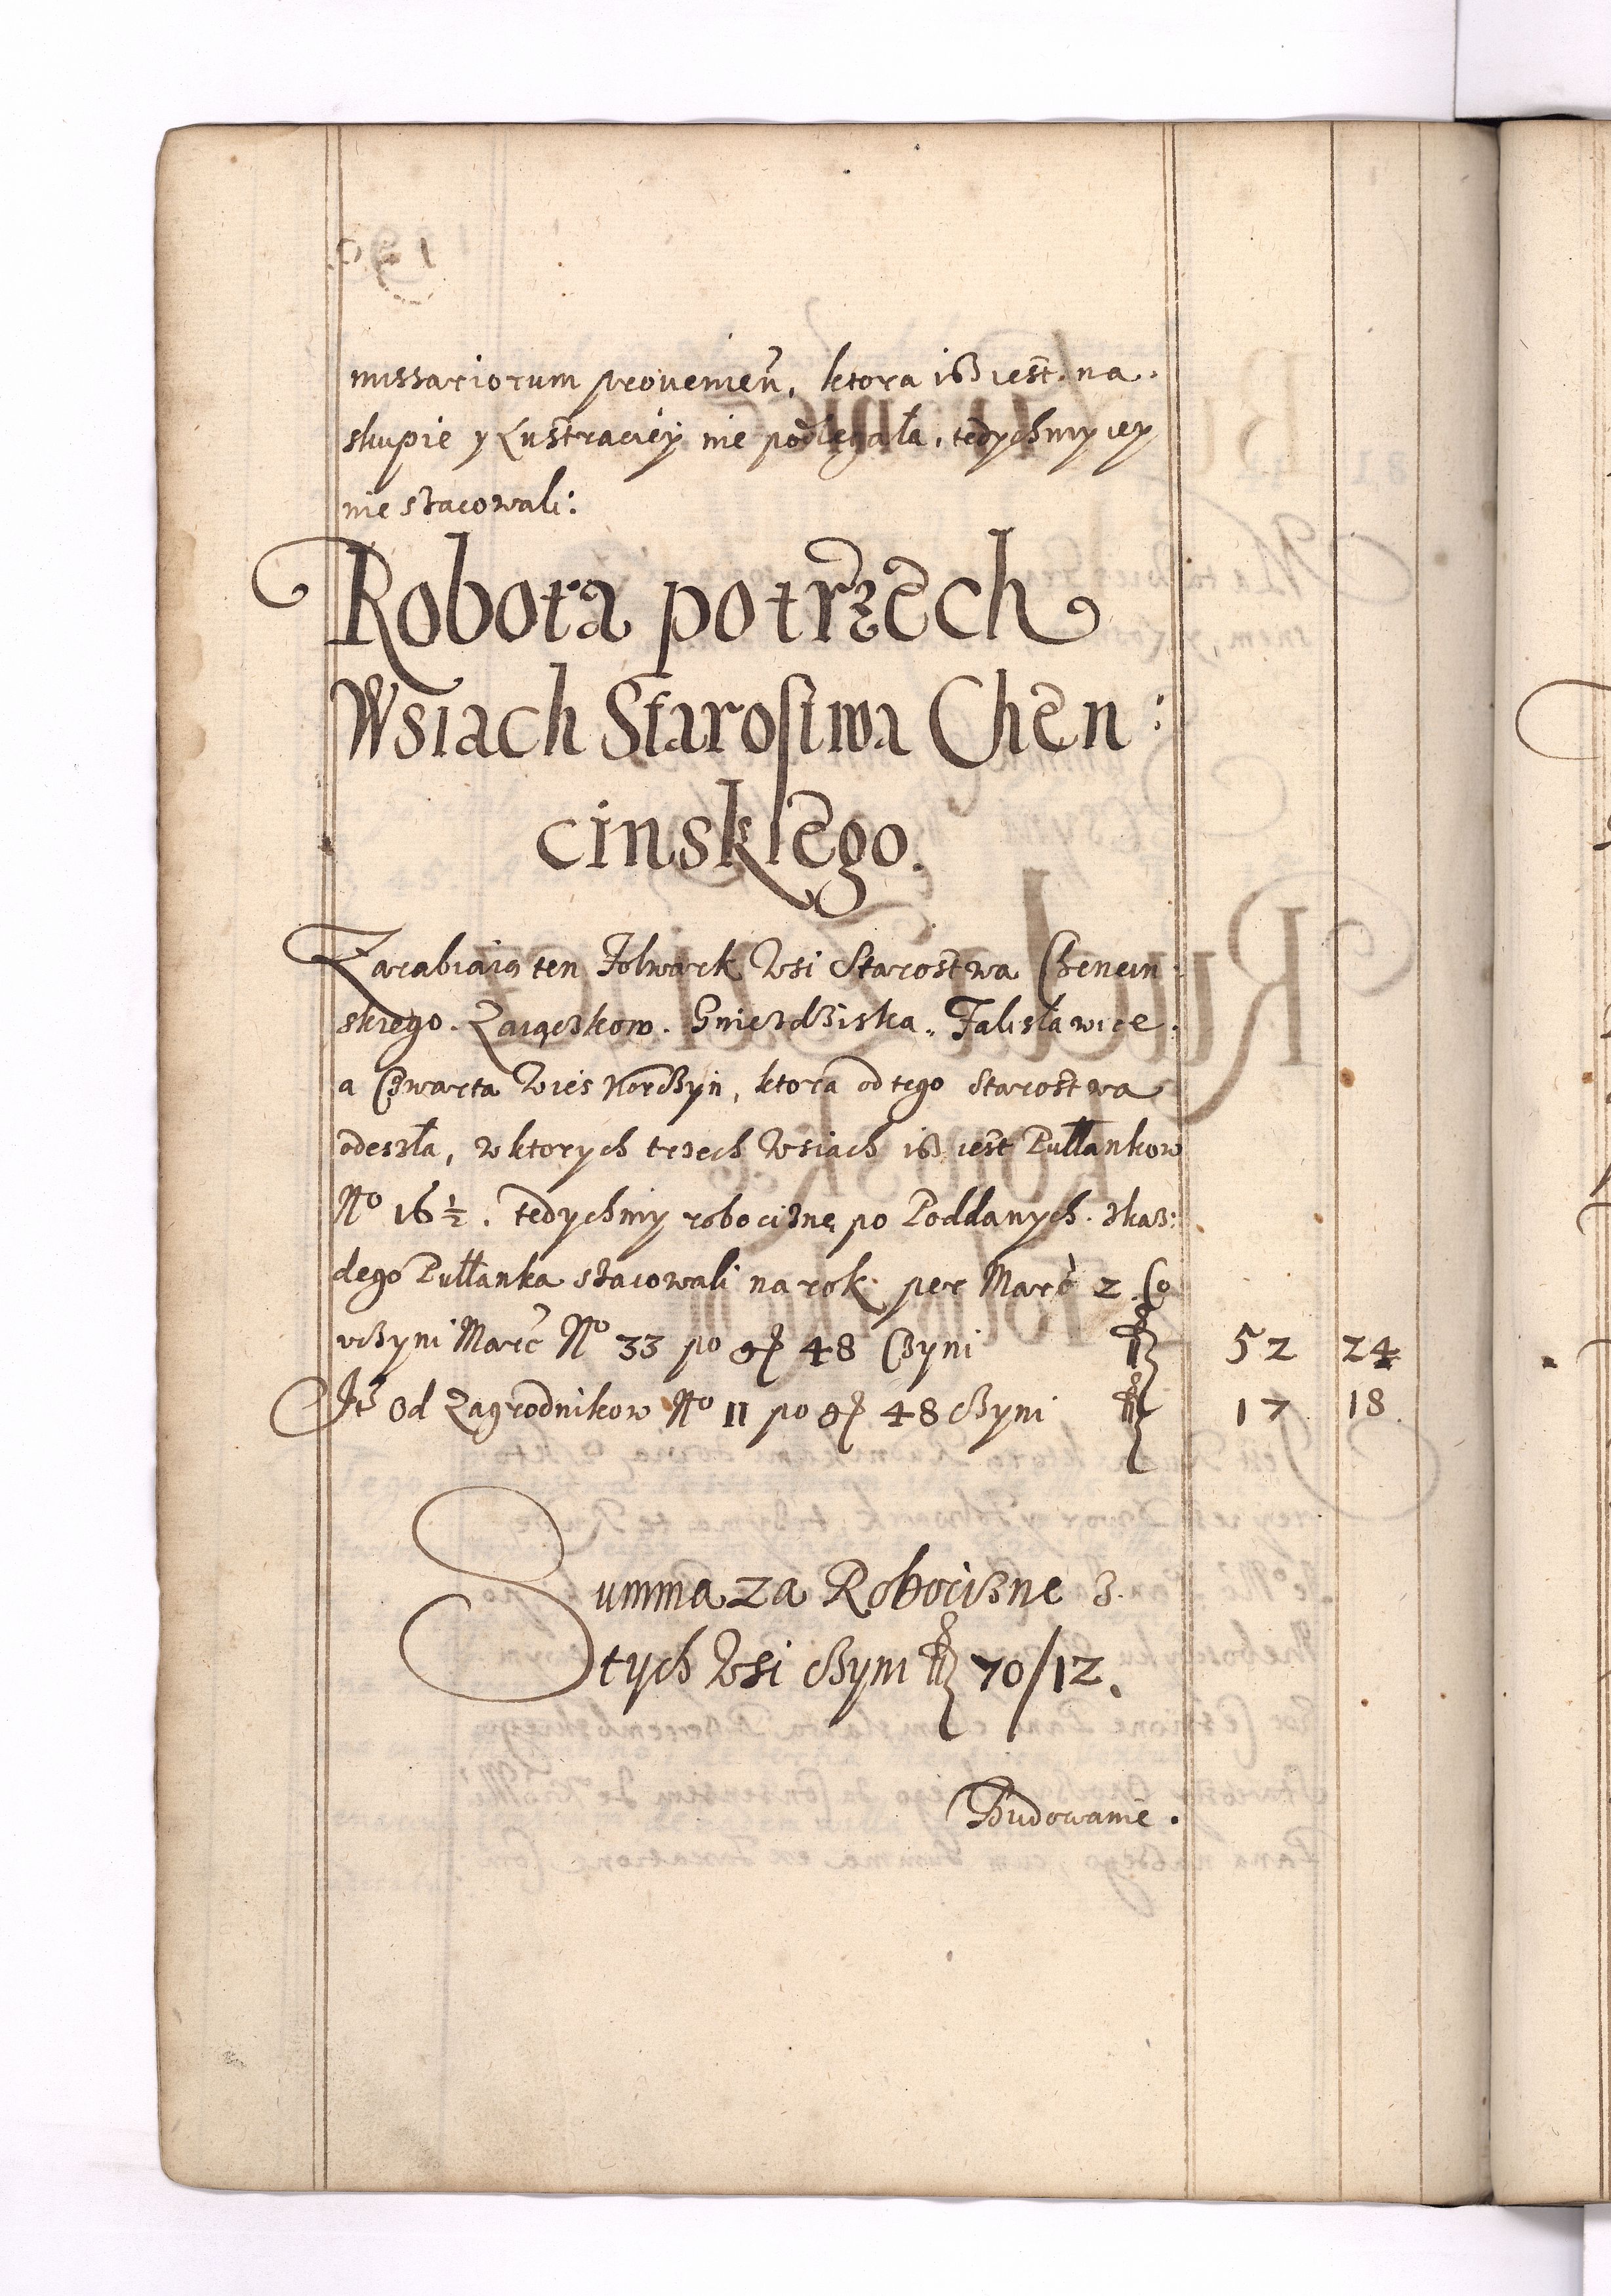 missariorum prouenien, ktora iß iest na
skupie y Lustraciey nie podlegała, tedychmy iey
nie szacowali:
Robota po trzech
Wsiach Starostwa Chen:
cinskiego.
Zarabiaią ten Folwark Wsi Starostwa Chencin
skiego. Zaiączkow. Gniezdziska. Falisławice.
a Czwarta Wies Korczyn, ktora od tego Starostwa
odeszła, w ktorych trzech Wsiach iß iest Pułłankow
No 16 ½. tedychmy robociznę po Poddanych. zkaß:
dego Pułłanka szacowali na rok per Marc 2. Co
vczyni Marc No 33 po gr 48 Czyni fl 52 24
It Od Zagrodnikow No 11 po gr 48 czyni fl 17 18.
Summa za Robocizne z
tych Wsi czyni fl 70/12.
Budowanie.